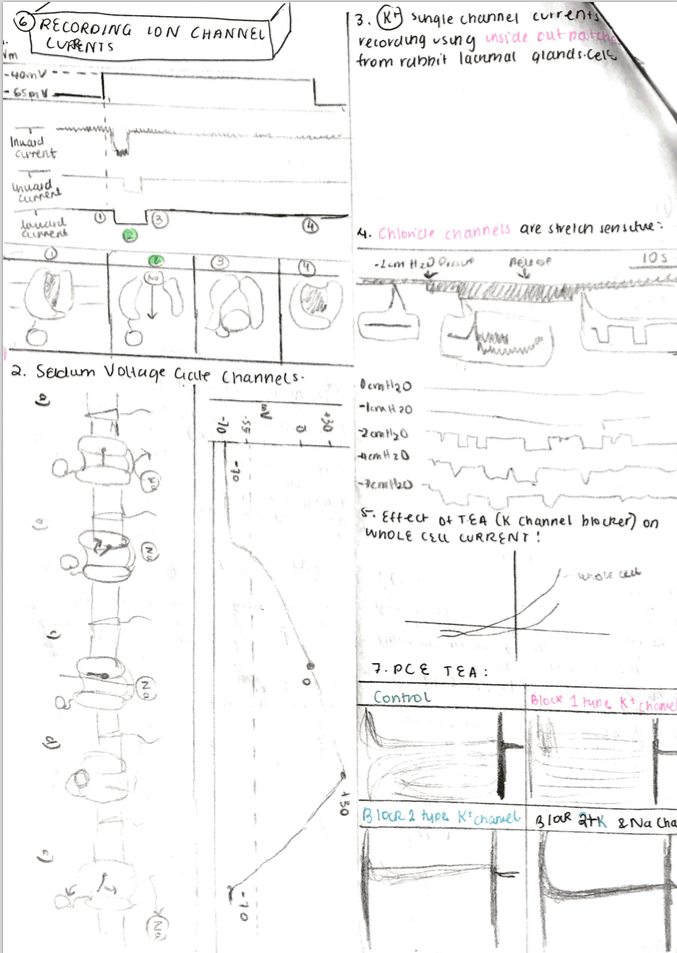 6 RECORDING ION CHANNEL
CURRENTS
Vm
-40mV
-65mV
Inward
current
Inward
current
Inward
current
1
2
3
4
1
2
3
4
Na
2. Sodium Voltage Gate Channels.
a)
Na
Na
c)
Na
d)
e)
Na
mV
+30
0
-55
-70
-70
0
+30
-70
3. K+ single channel currents
recording using inside out patch
from rabbit lacrimal glands.cell
4. Chloride channels are stretch sensitive:
-1cm H2O
Release
10s
0cmH2O
-1cmH2O
-2cmH2O
-4cmH2O
-7cmH2O
5. Effect of TEA (K channel blocker) on
WHOLE CELL CURRENT!
whole cell
7. PCE TEA:
Control
Block 1 type K+ channel
Block 2 type K+ channel
Block 2+K & Na Cha